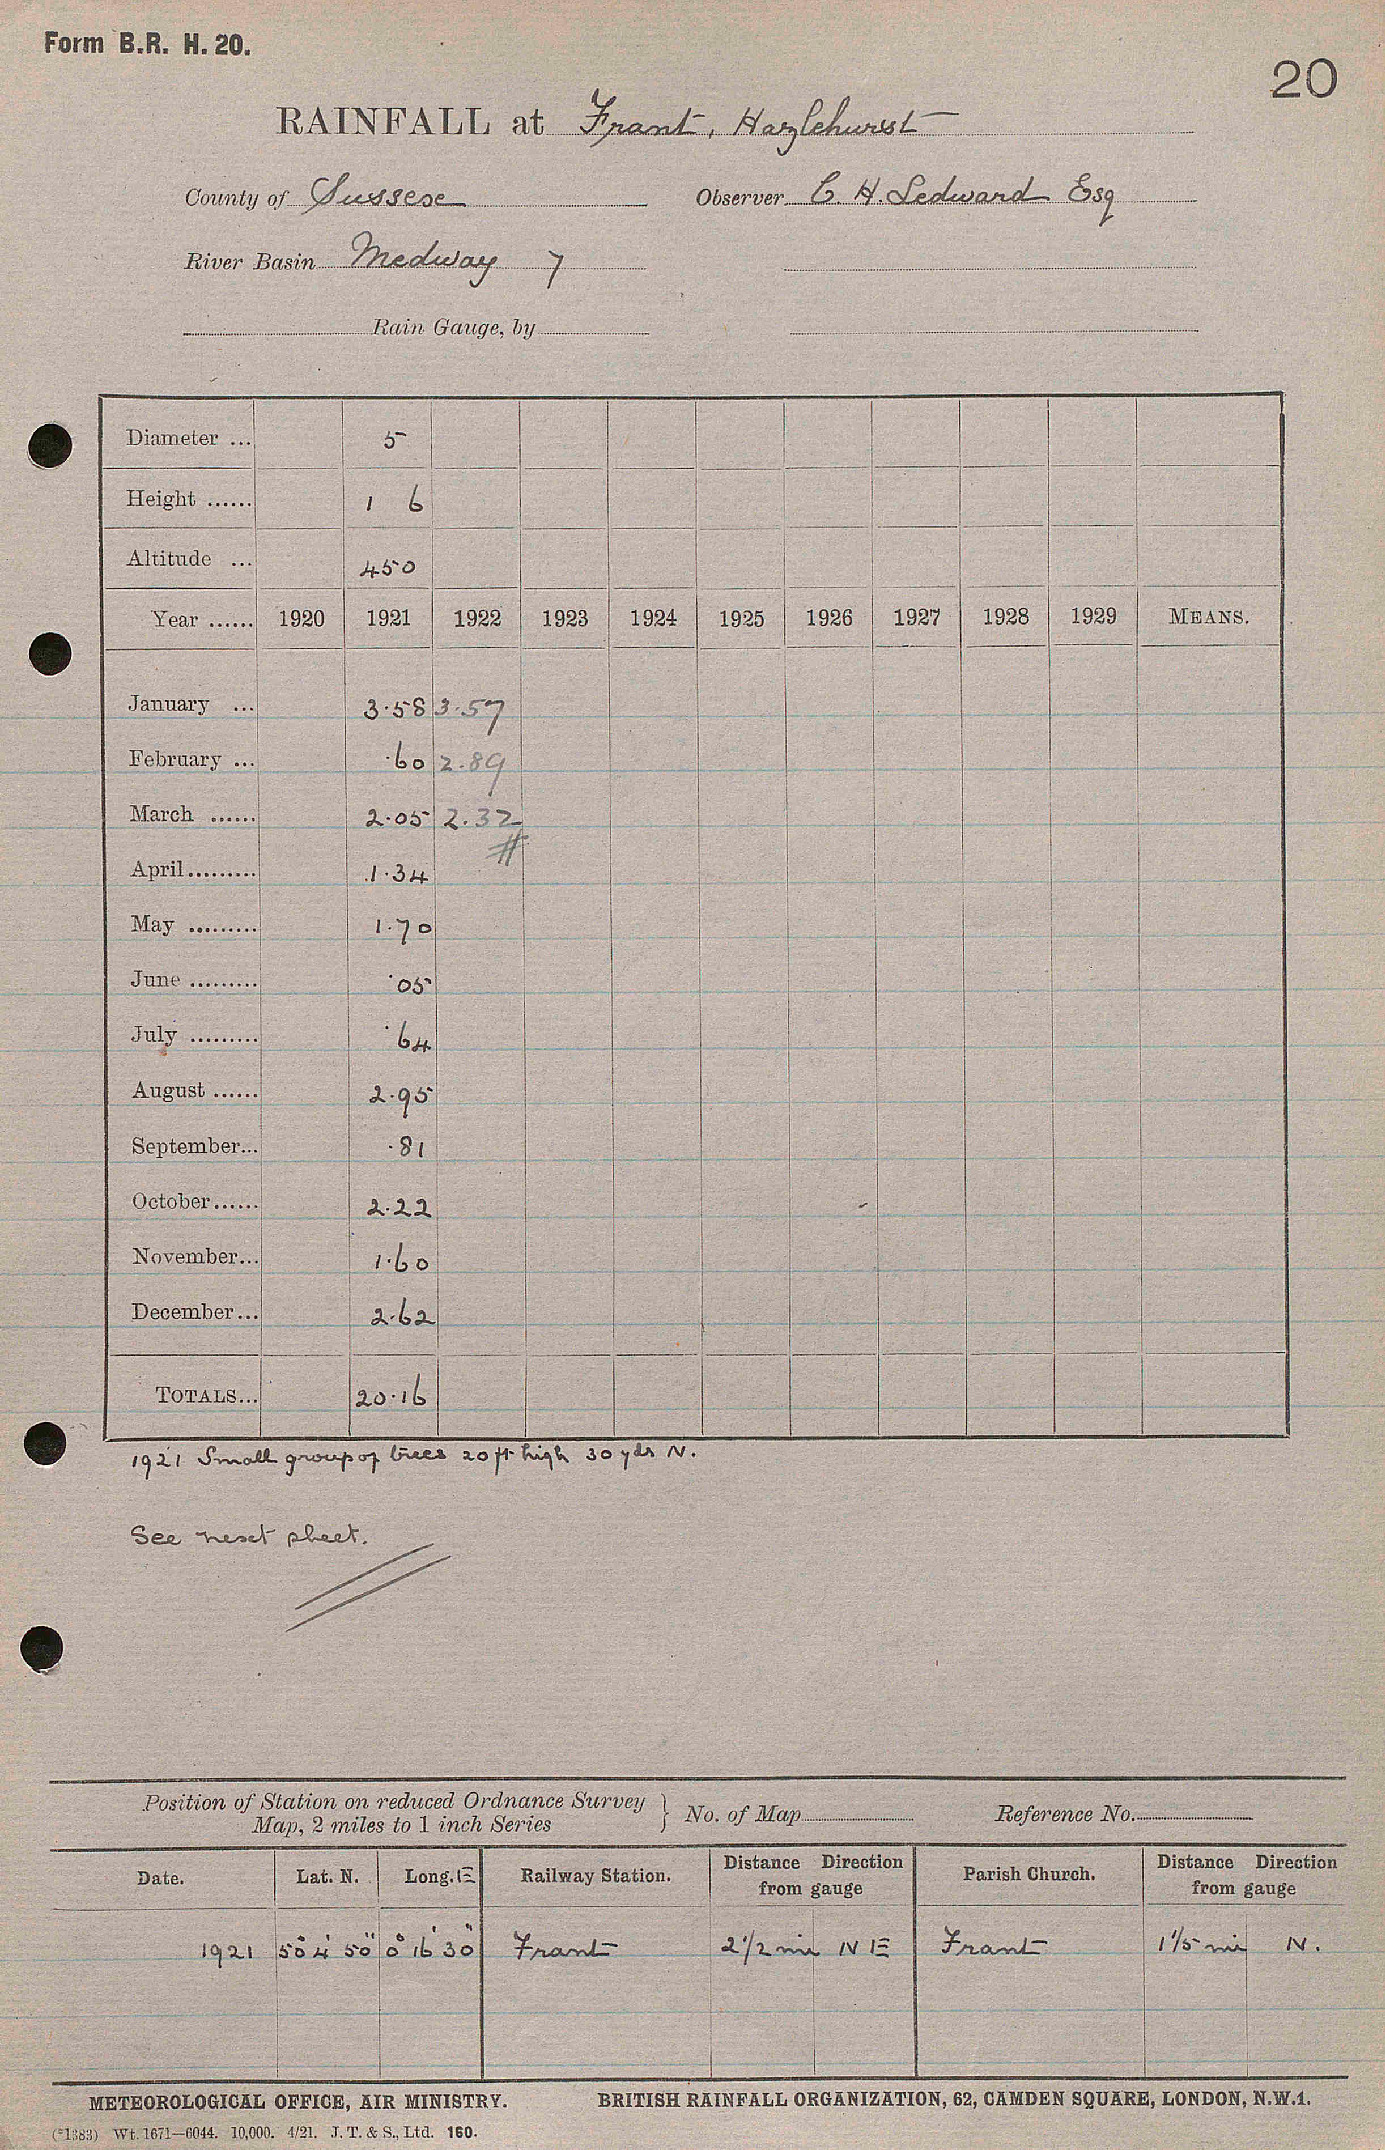 Form B.R. H. 20.
20
RAINFALL at Frant, Hazlehurst
County of Sussex Observer C. H. Ledward Esq
River Basin Medway 7
Rain Gauge, by
Diameter ... 5
Height ...... 1 6
Altitude ... 450
Year ...... 1920 1921 1922 1923 1924 1925 1926 1927 1928 1929 MEANS.
January ... 3.58 3.57
February ... .60 2.89
March ...... 2.05 2.32
April ......... 1.34
May ......... 1.70
June ......... .05
July ......... .64
August ...... 2.95
September ... .81
October ...... 2.22
November ... 1.60
December ... 2.62
TOTALS ... 20.16
1921 Small group of trees 20 ft high 30 yds N.
See next sheet.
Position of Station on reduced Ordnance Survey
Map, 2 miles to 1 inch Series } No. of Map Reference No.
Date. Lat. N. Long. E Railway Station. Distance Direction from gauge Parish Church. Distance Direction from gauge
1921 50° 4' 50" 0° 16' 30" Frant 2 1/2 mi N E Frant 1 1/5 mi N.
METEOROLOGICAL OFFICE, AIR MINISTRY. BRITISH RAINFALL ORGANIZATION, 62, CAMDEN SQUARE, LONDON, N.W.1.
(*1383) Wt. 1671—6044. 10,000. 4/21. J. T. & S., Ltd. 160.